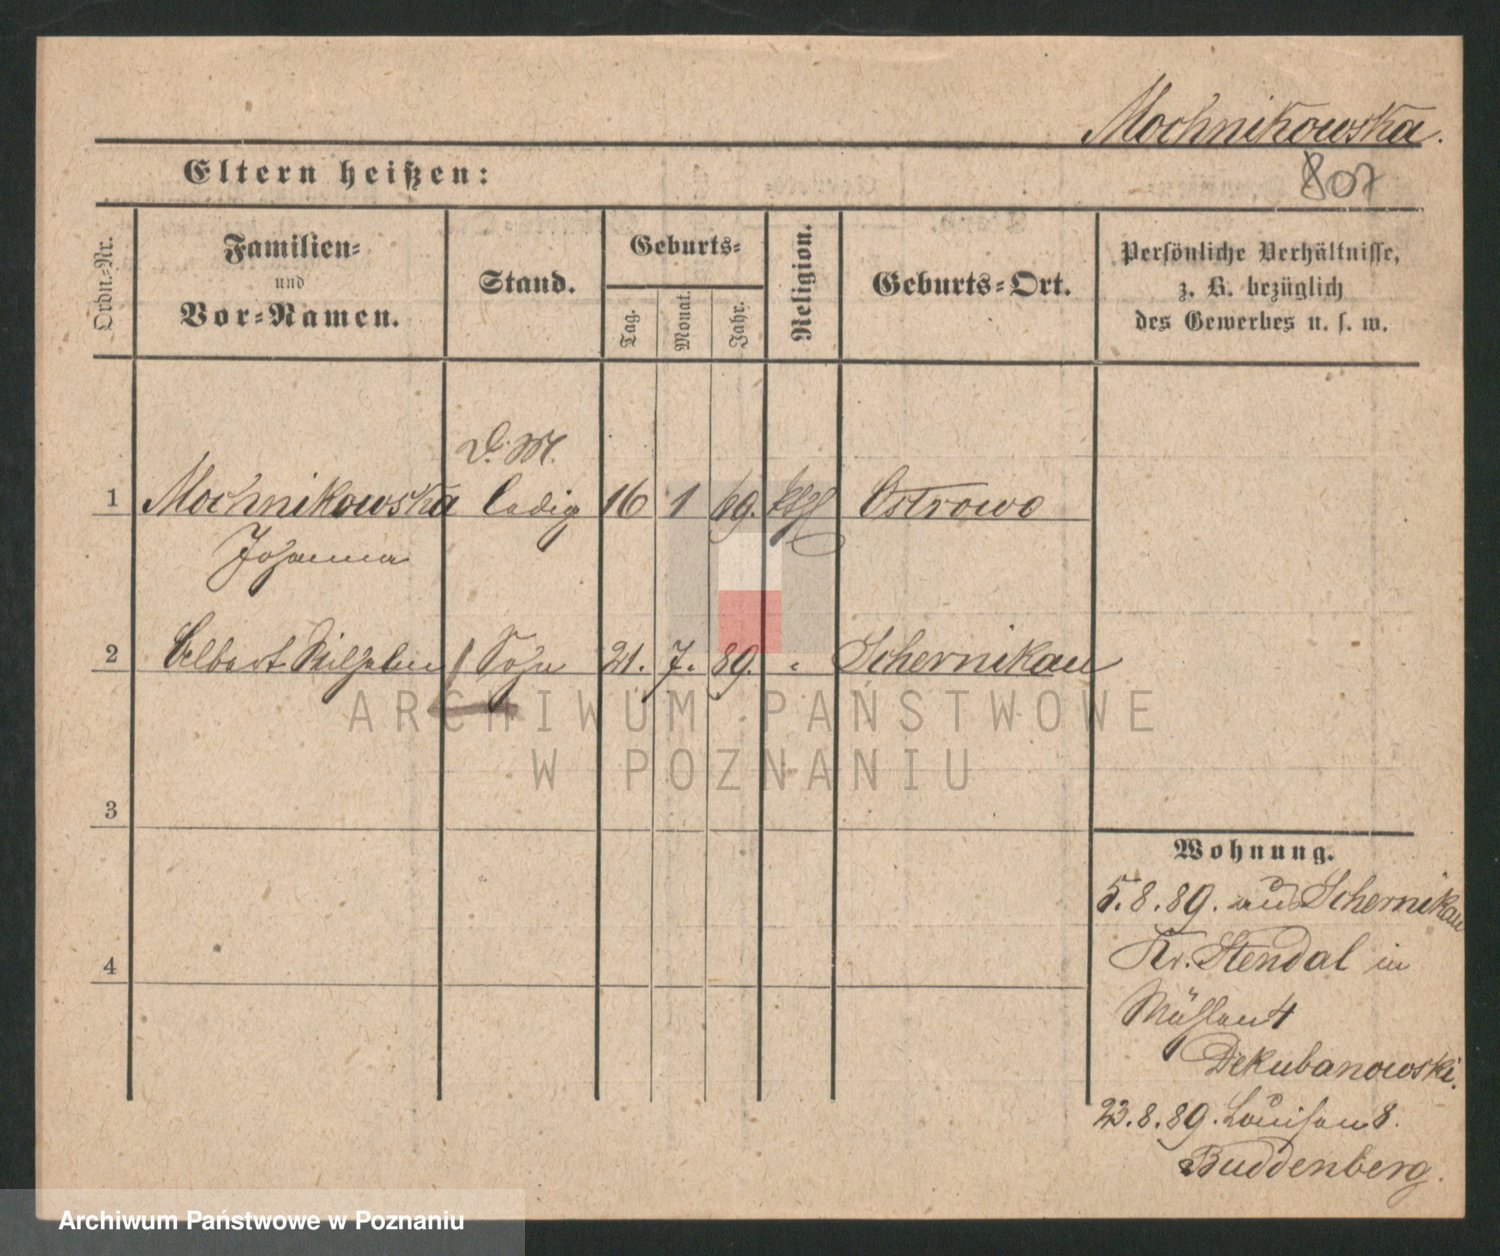 Mochnikowska.
807
Eltern heißen:
Ordn.-Nr.
Familien-
und
Vor-Namen.
Stand.
Geburts-
Tag.
Monat.
Jahr.
Religion.
Geburts-Ort.
Persönliche Verhältnisse,
z. B. bezüglich
des Gewerbes u. s. w.
D. M.
1 Mochnikowska ledig 16 1 69. kth Ostrowo
Johanna
2 Albert Wilhelm Sohn 21. 7. 89. " Schernikau
3
4
Wohnung.
5.8.89. aus Schernikau
Kr. Stendal in
Mühlen 4
Dekubanowski.
23.8.89. Louisen 8.
Buddenberg.
ARCHIWUM PAŃSTWOWE
W POZNANIU
Archiwum Państwowe w Poznaniu